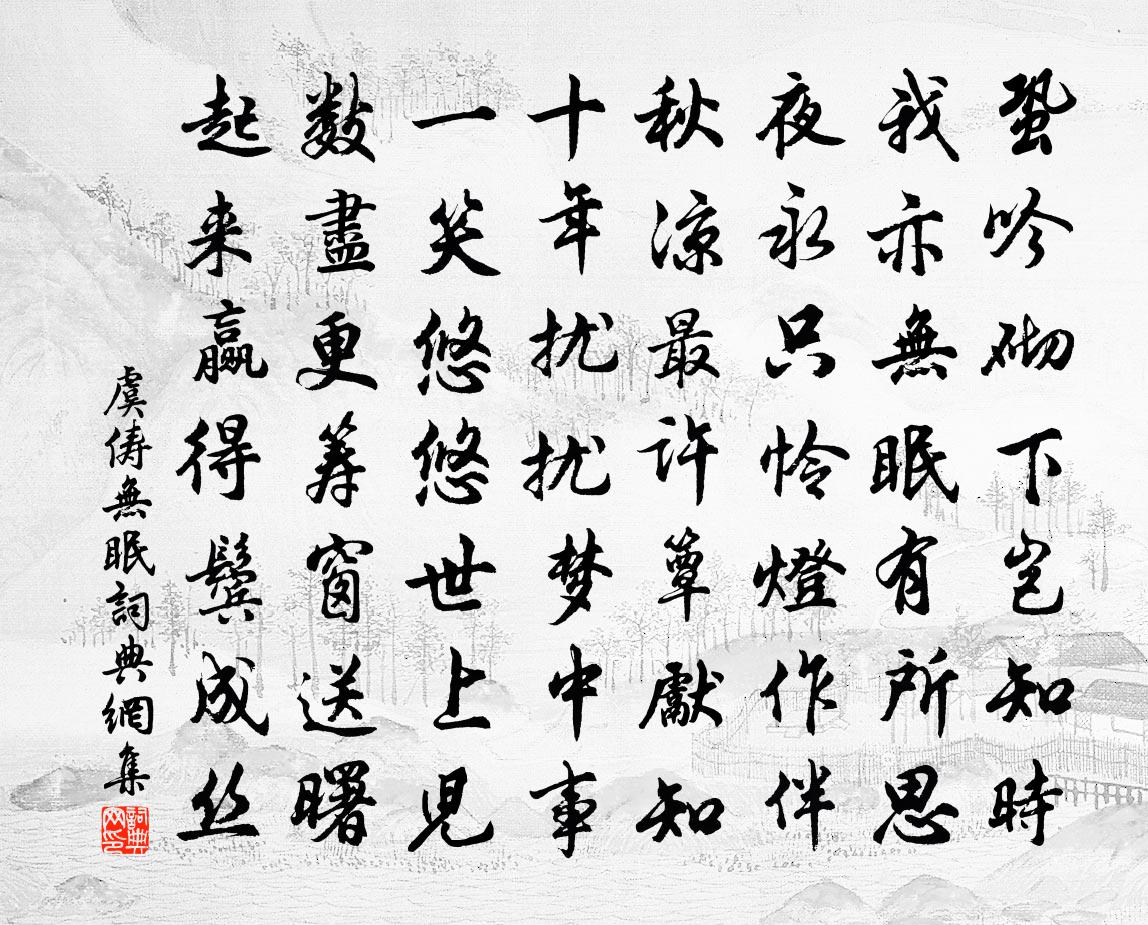 蛩吟砌下岂知時
我亦無眠有所思
夜永只怜燈作伴
秋涼最許簟獻知
十年扰扰梦中事
一笑悠悠世上児
數盡更筹窗送曙
起来赢得鬓成丝
虞俦無眠詞典網集
詞典网印